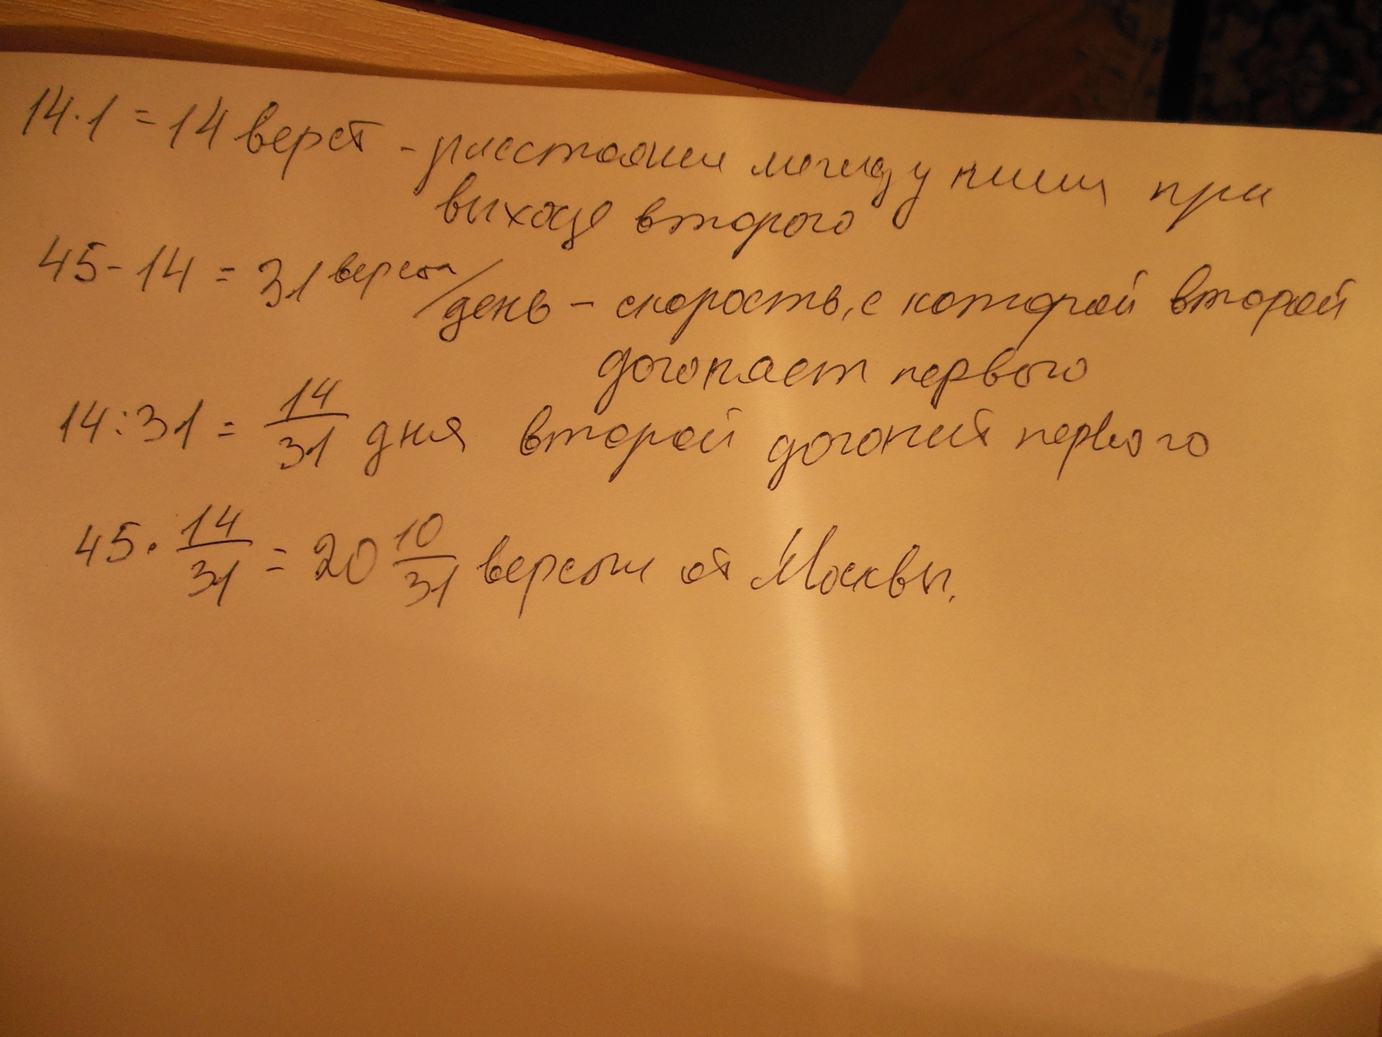 14·1 = 14 верст - расстояние между ними при
выходе второго
45 - 14 = 31 верста/день - скорость, с которой второй
догоняет первого
14:31 = 14/31 дня второй догонит первого
45 · 14/31 = 20 10/31 версты от Москвы.